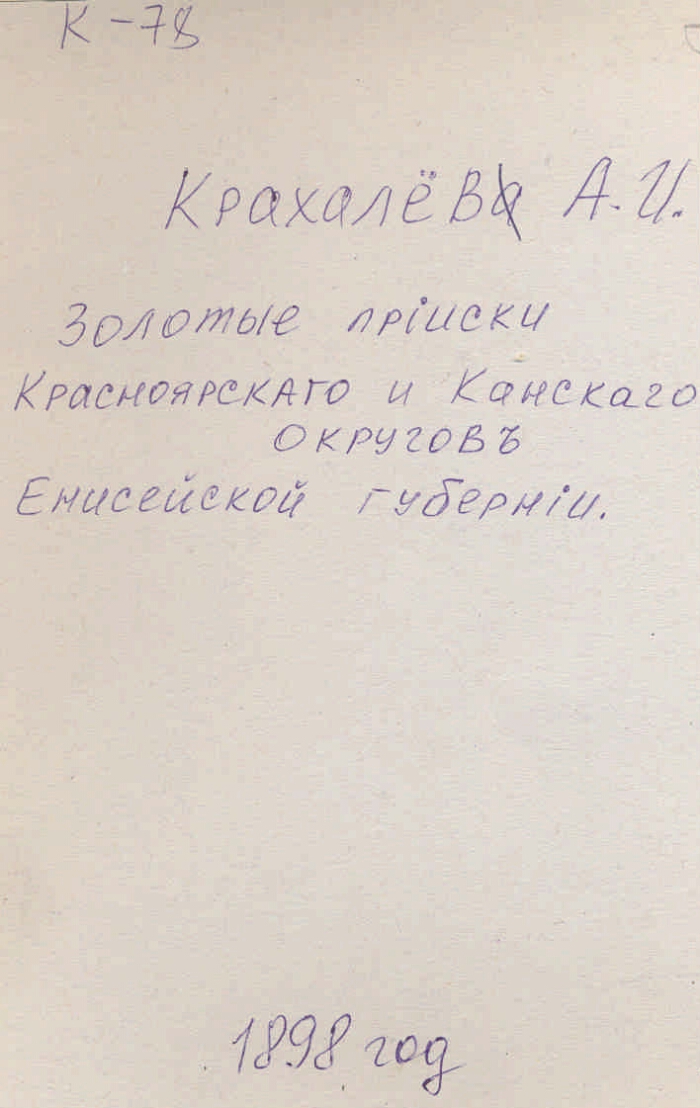 К-78
Крахалёв А.И.
Золотые прiиски
Красноярскаго и Канскаго
округовъ
Енисейской губернiи.
1898 год